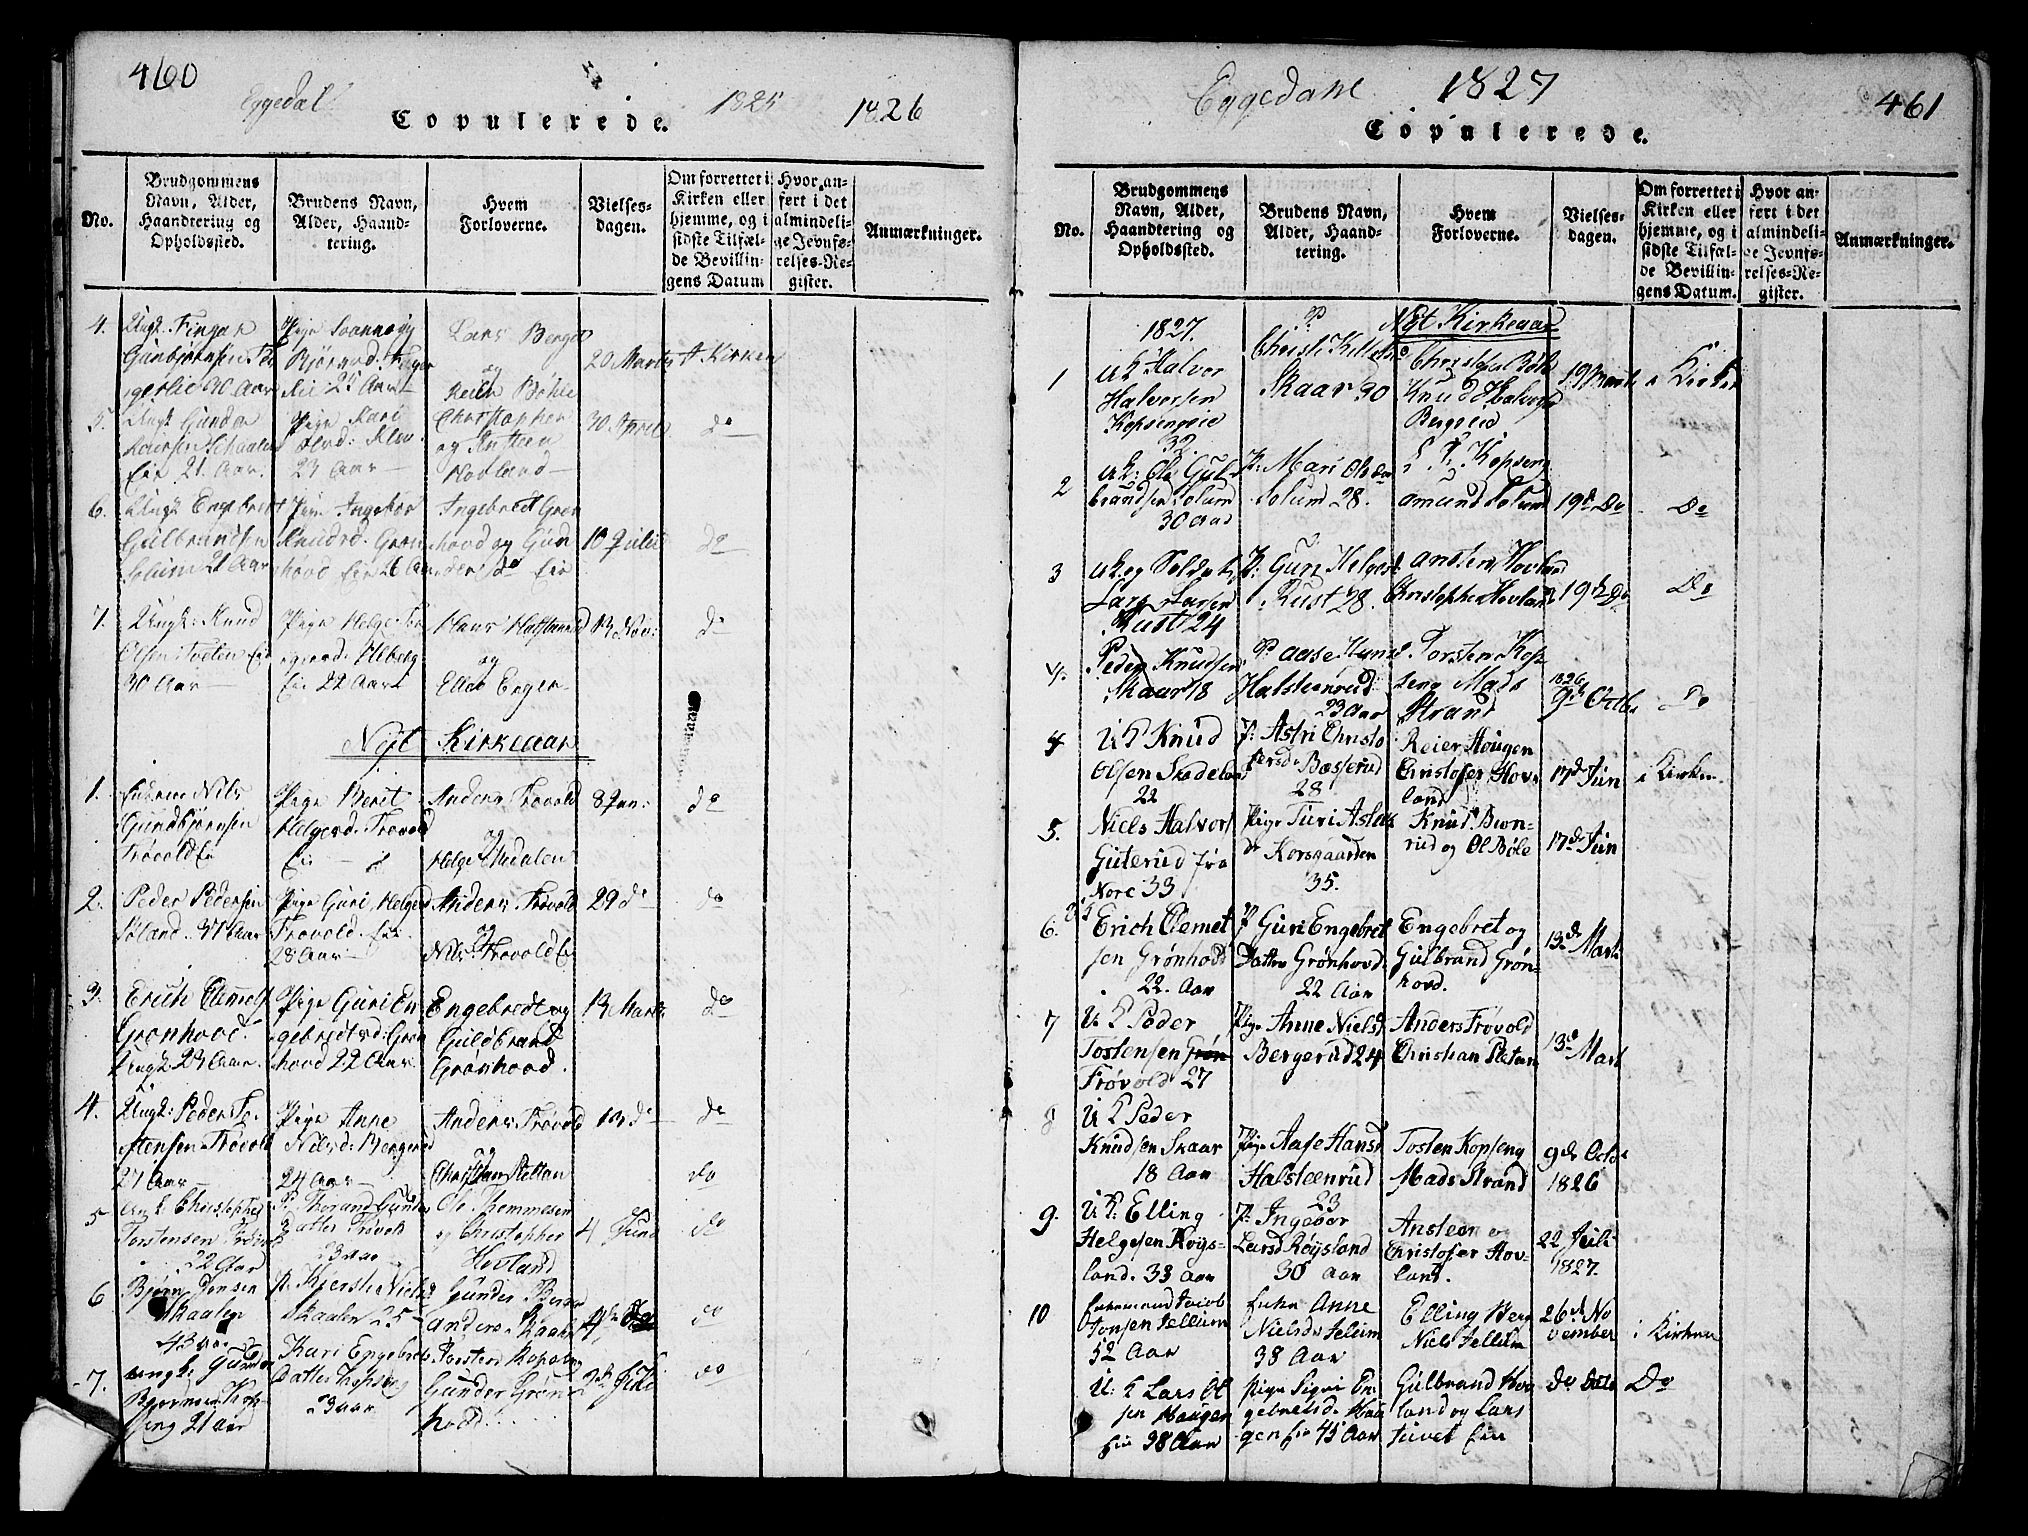 460
Eggedal
Copulerede.
1825
1826
No.
Brudgommens Navn, Alder, Haandtering og Opholdssted.
Brudens Navn, Alder, Haandtering.
Hvem Forloverne.
Vielsesdagen.
Om forrettet i Kirken eller hjemme, og i sidste Tilfælde Bevillingens Datum
Hvor anført i det almindelige Jevnførelses-Register.
Anmærkninger.
4.
Ungk: Fingar
Gunbjørnsen
30 Aar
Pige
25 Aar
Lars Berget
og
Reier Bøhle
20 Marts
I Kirken
5.
Ungk Gunder
Larsen Skaalen
Eie 21 Aar.
Pige Kari
Olsd: Klev
23 Aar
Christopher
og Ansteen
Hovland
30 April
do
6.
Ungk Engebret
Gulbrandsen
Solum 21 Aar
Pige Ingebor
Knudsd. Grøn
hovd Eie 26 Aar
Ingebredt Grøn
hovd og Gun
der do Eie
10 Julii
do
7.
Ungk: Knud
Olsen Tveten Eie
30 Aar
Pige Helge
Eie 22 Aar
Hans
og
Ellev Engen
13 Nov:
do
Nyt Kirkeaar
1.
Enkem Nils
Gundbjørnsen
Frøvold Ei
Pige Berit
Helgesd. Frøvold
Eie
Anders Frøvold
og
Helge Medalen
8 Jan:
do
2.
Peder Pedersen
Aar
Pige Guri Helgesd
Frøvold. Eie
28 Aar
Anders Frøvold
og
Nils Frøvold Ei
29 do
do
3.
Erich Clemets
Grønhovd.
Ungk 23 Aar
Pige Guri En
gebredtsd: Grøn
hovd 22 Aar
Engebredt og
Guldbrand
Grønhovd.
13 Marts
do
4.
Ungk: Peder To
stensen Frøvold
27 Aar
Pige Anne
Nilsd: Bergerud
24 Aar
Anders Frøvold
og
Christian Slettan
13 do
do
do
5
Ungk Christopher
Torstensen
22 Aar
P. Thorand Gunders
Datter Frøvold
23 Aar
Ole Themmesen
og Christopher
Hovland
4 Juni
do
6
Bjørn Jensen
Skaalen
43 Aar
P. Kjersti Niels
Skaalen 25
Gunder
Anders Skaalen
do
7.
Ungk: Gunder
Bjørnsen Kop
seng 21 Aar
Kari Engebrets
Datter Kopseng
23 Aar
Torsten Kopseng
Gunder Grøn
hovd
2den Juli
do
Eggedahl
1827
461
Copulerede.
No.
Brudgommens Navn, Alder, Haandtering og Opholdssted.
Brudens Navn, Alder, Haandtering.
Hvem Forloverne.
Vielsesdagen.
Om forrettet i Kirken eller hjemme, og i sidste Tilfælde Bevillingens Datum.
Hvor anført i det almindelige Jevnførelses-Register.
Anmærkninger.
1827.
Nyt Kirkeaar
1
UK Halvor
Halvorsen
Kopsengeie
32.
P
Christi Killels
Skaar 30
Christofal Bøle
Knud Halvorsen
Bergseie
19 Marts
i Kirken
2
UK: Ole Gul
brandsen Solum
30 Aar
P: Mari Olsda
Solum 28.
Kopseng
Amund Solum
19de Do
Do
3
UK og Soldat
Lars Larsen
Rust 24
P: Guri Helgesd
Rust 28.
Ansten Hovland
Christopher Hovland
19de Do
Do
4.
Peder Knudsen
Skaar 18
P Aase Hansd
Halsteenrud
23 Aar
Torsten Kop
seng Mads
Strand
1826
9de Octbr
Do
4
UK Knud
Olsen Skadeland
22
P: Astri Christo
fersd: Basserud
28
Reier Hougen
Christofer Hov
land
17de Jun
i Kirken
5.
Niels Halvors
Guterud fra
Nore 33
Pige Turi Aslak
dr Korsgaarden
35.
Knud Bron
rud og Ol Bøle
17de Jun
6.
Erich Clemet
sen Grønhovd
22. Aar
P Guri Engebret
Datter Grønhovd
22 Aar
Engebret og
Gulbrand Grøn
hovd.
13de Marts
7
UK Peder
Tostensen Grøn
Frøvold 27
Pige Anne Nielsd
Bergerud 24
Anders Frøvold
Christian Sletan
13de Mart
8
UK Peder
Knudsen Skaar
18 Aar
Pige Aase Hansd
Halsteenrud
23
Tosten Kopseng
Mads Strand
9de Octbr
1826
9.
UK: Elling
Helgesen Røys
land. 33 Aar
P: Ingebor
Larsd Røysland
30 Aar
Ansteen og
Christofer Hov
land.
22 Juli
1827.
10
Enkemand Jacob
Jonsen Jellum
52 Aar
Enke Anne
Nielsdr Jelum
38 Aar
Elling Berg
Niels Jellum
26de No
vember
i Kirken
U: K Lars Ol
sen Haugen
Eie 38 Aar
Pige Sigri En
gebretsd: Hau
gen Eie 45 Aar
Gulbrand Hov
land og Lars
Tuvet Eie
Do Dato
Do